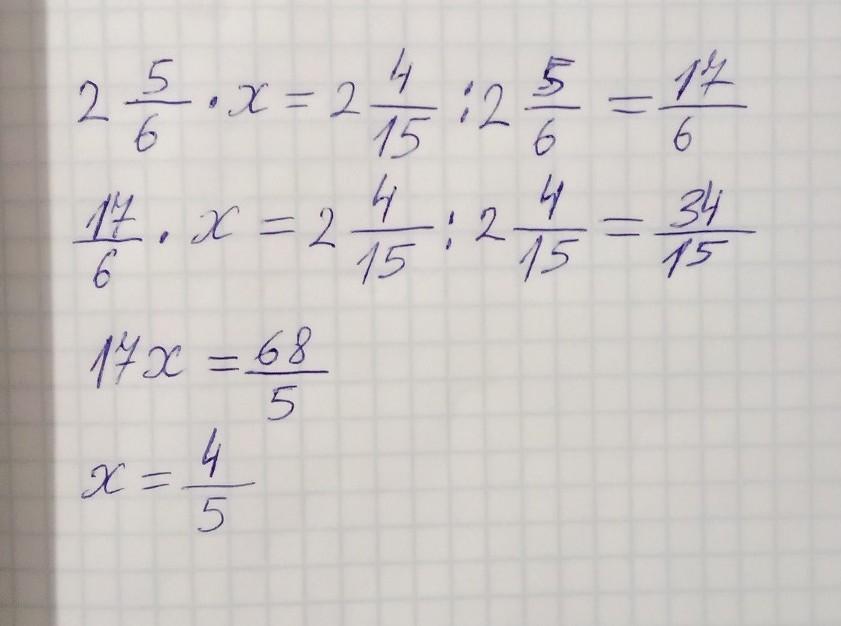 2 5/6 · x = 2 4/15 : 2 5/6 = 17/6
17/6 · x = 2 4/15 : 2 4/15 = 34/15
17x = 68/5
x = 4/5